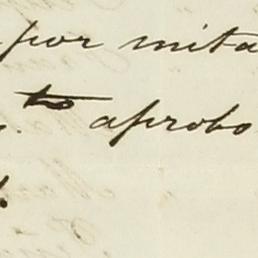 por mita
to aprobo